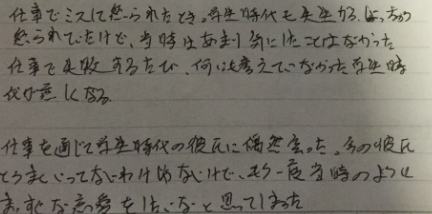 仕事でミスして怒られたとき。学生時代も先生からしょっちゅう
怒られていたけど、当時はあまり気にしたことはなかった
仕事で失敗するたび、何も考えていなかった学生時
代が恋しくなる。
仕事を通じて学生時代の彼氏に偶然会った。今の彼氏
とうまくいってないわけじゃないけど、もう一度当時のように
まっすぐな恋愛をしたいなと思ってしまった